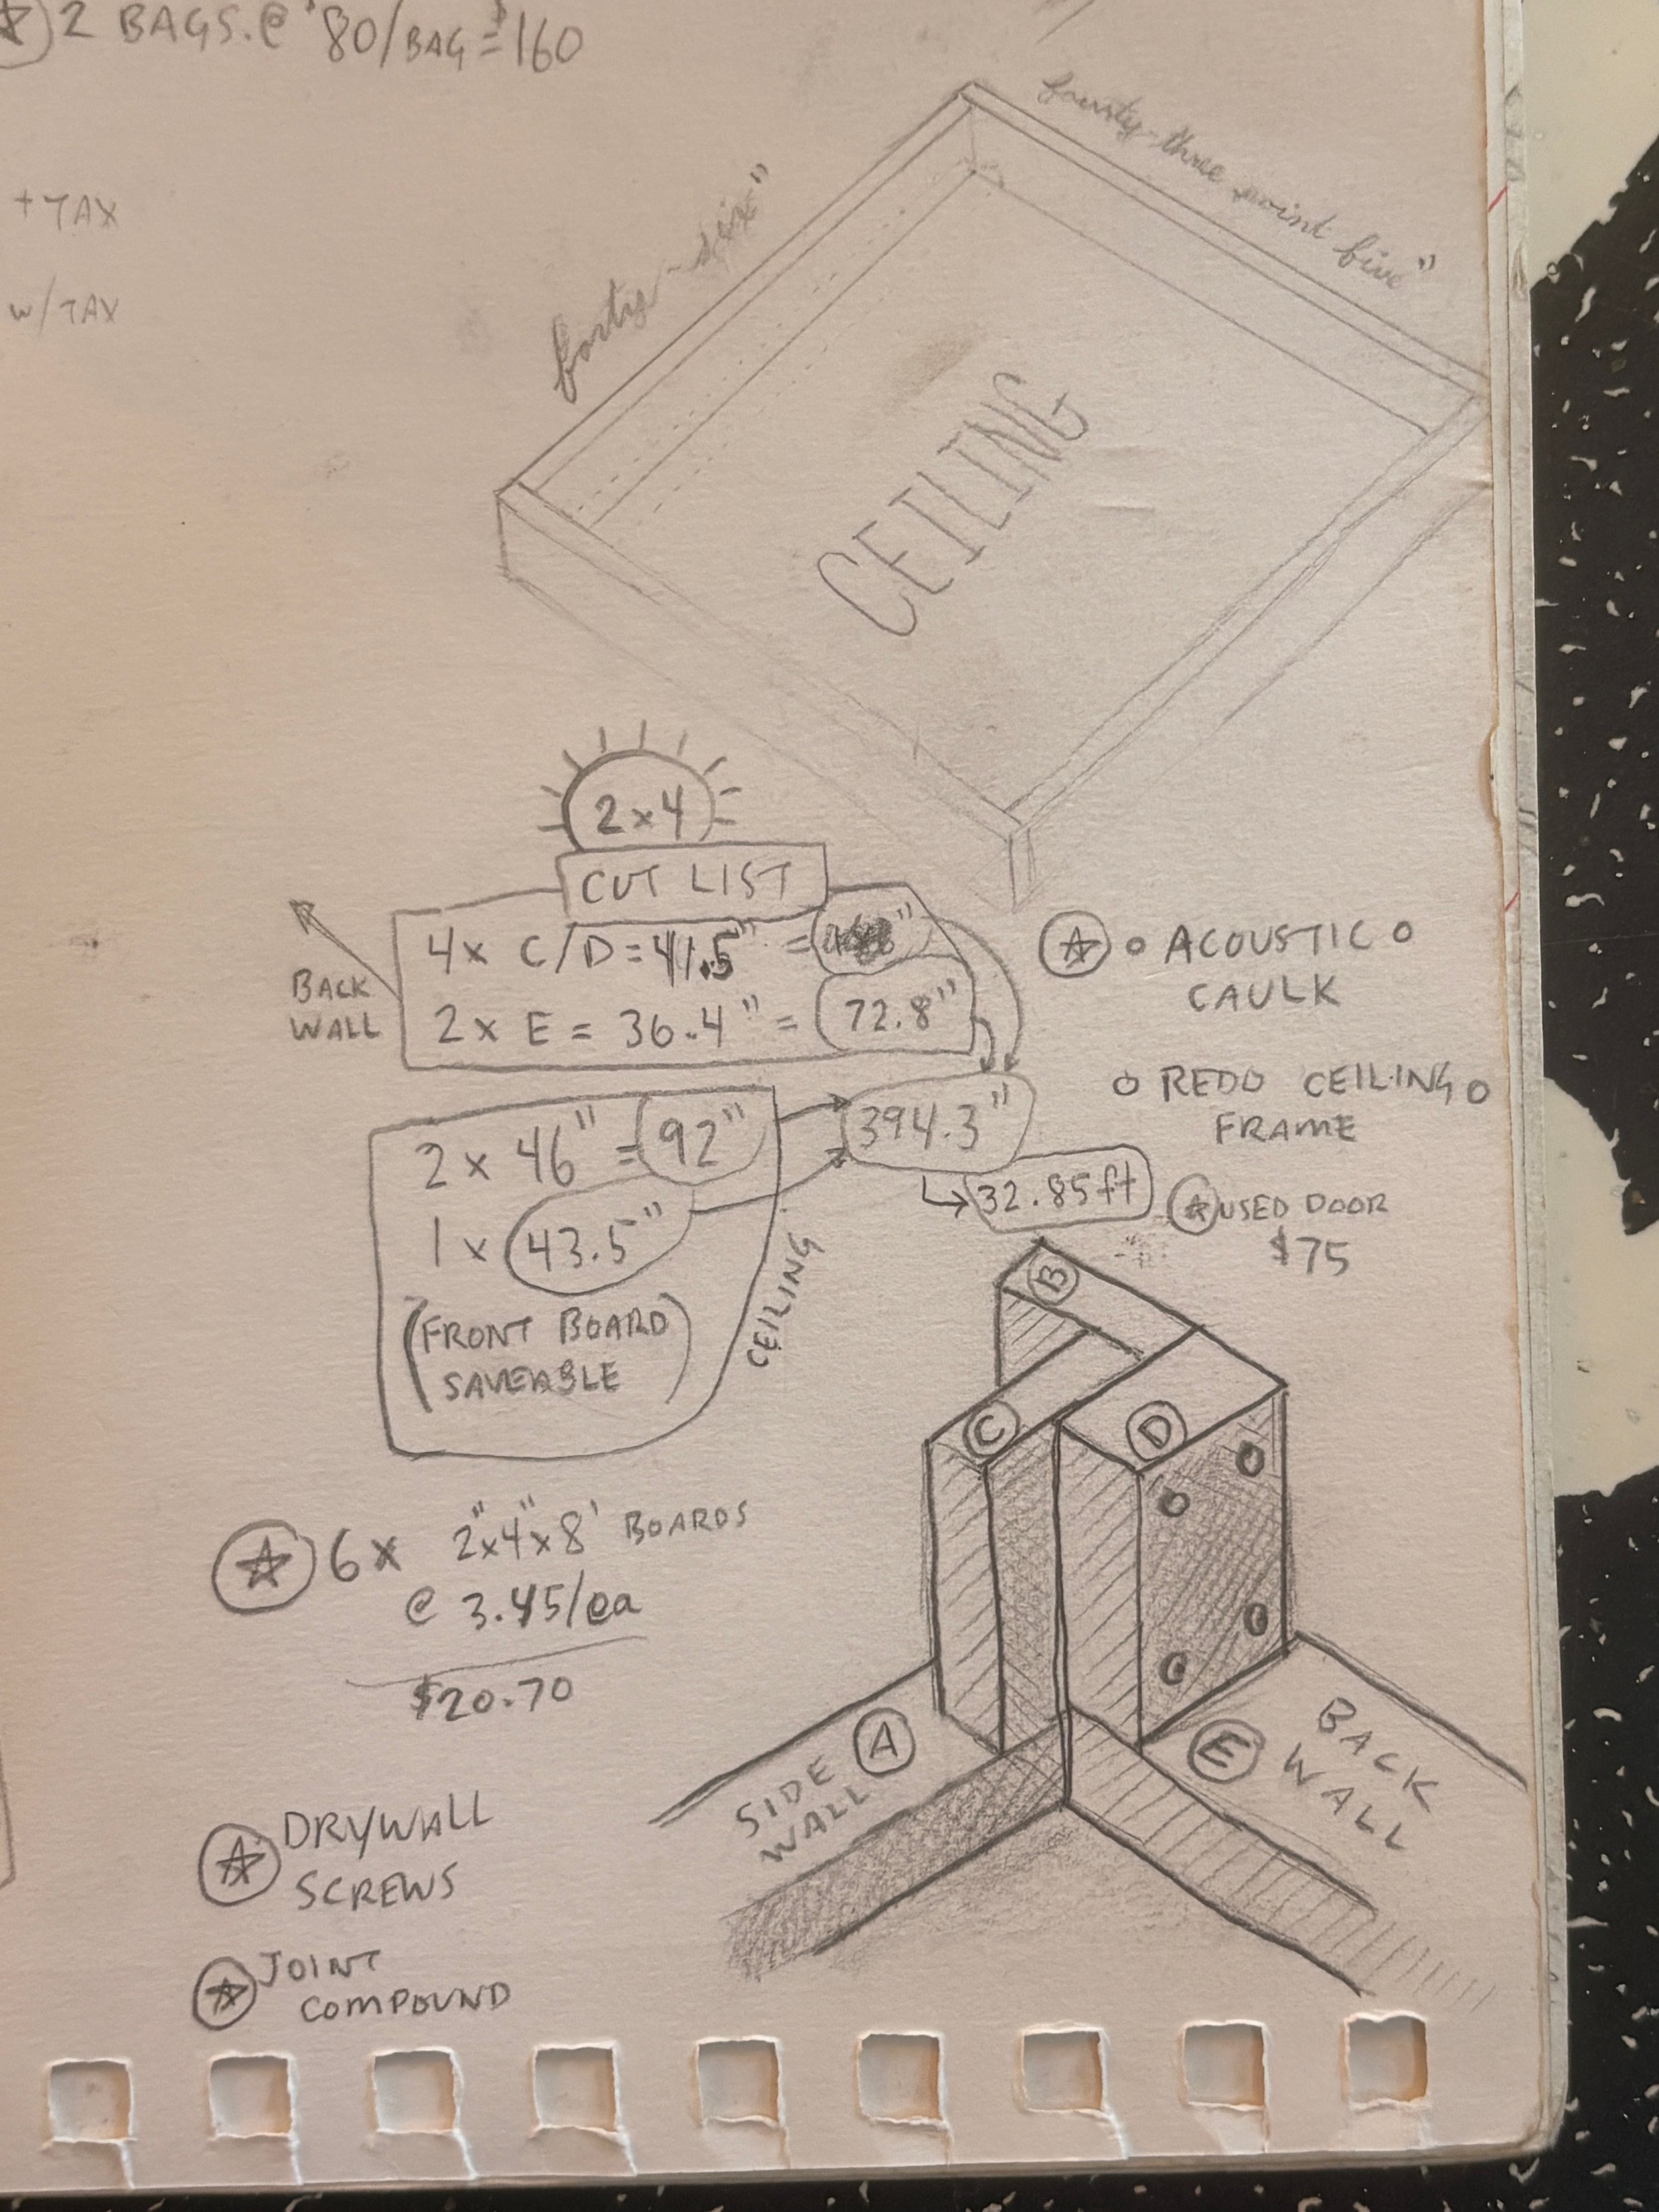 2 BAGS. @ $80/BAG = $160
+ TAX
w/ TAX
forty-six"
fourty-three point five"
CEILING
2x4
CUT LIST
4x C/D = 41.5" =
2 x E = 36.4" = 72.8"
BACK
WALL
2 x 46" = 92"
1 x 43.5"
(FRONT BOARD
SAVEABLE)
CEILING
394.3"
32.85 ft
ACOUSTIC
CAULK
REDO CEILING
FRAME
USED DOOR
$75
6x 2"x4"x8' BOARDS
@ 3.45/ea
$20.70
DRYWALL
SCREWS
JOINT
COMPOUND
B
C
D
SIDE A
WALL
E BACK
WALL